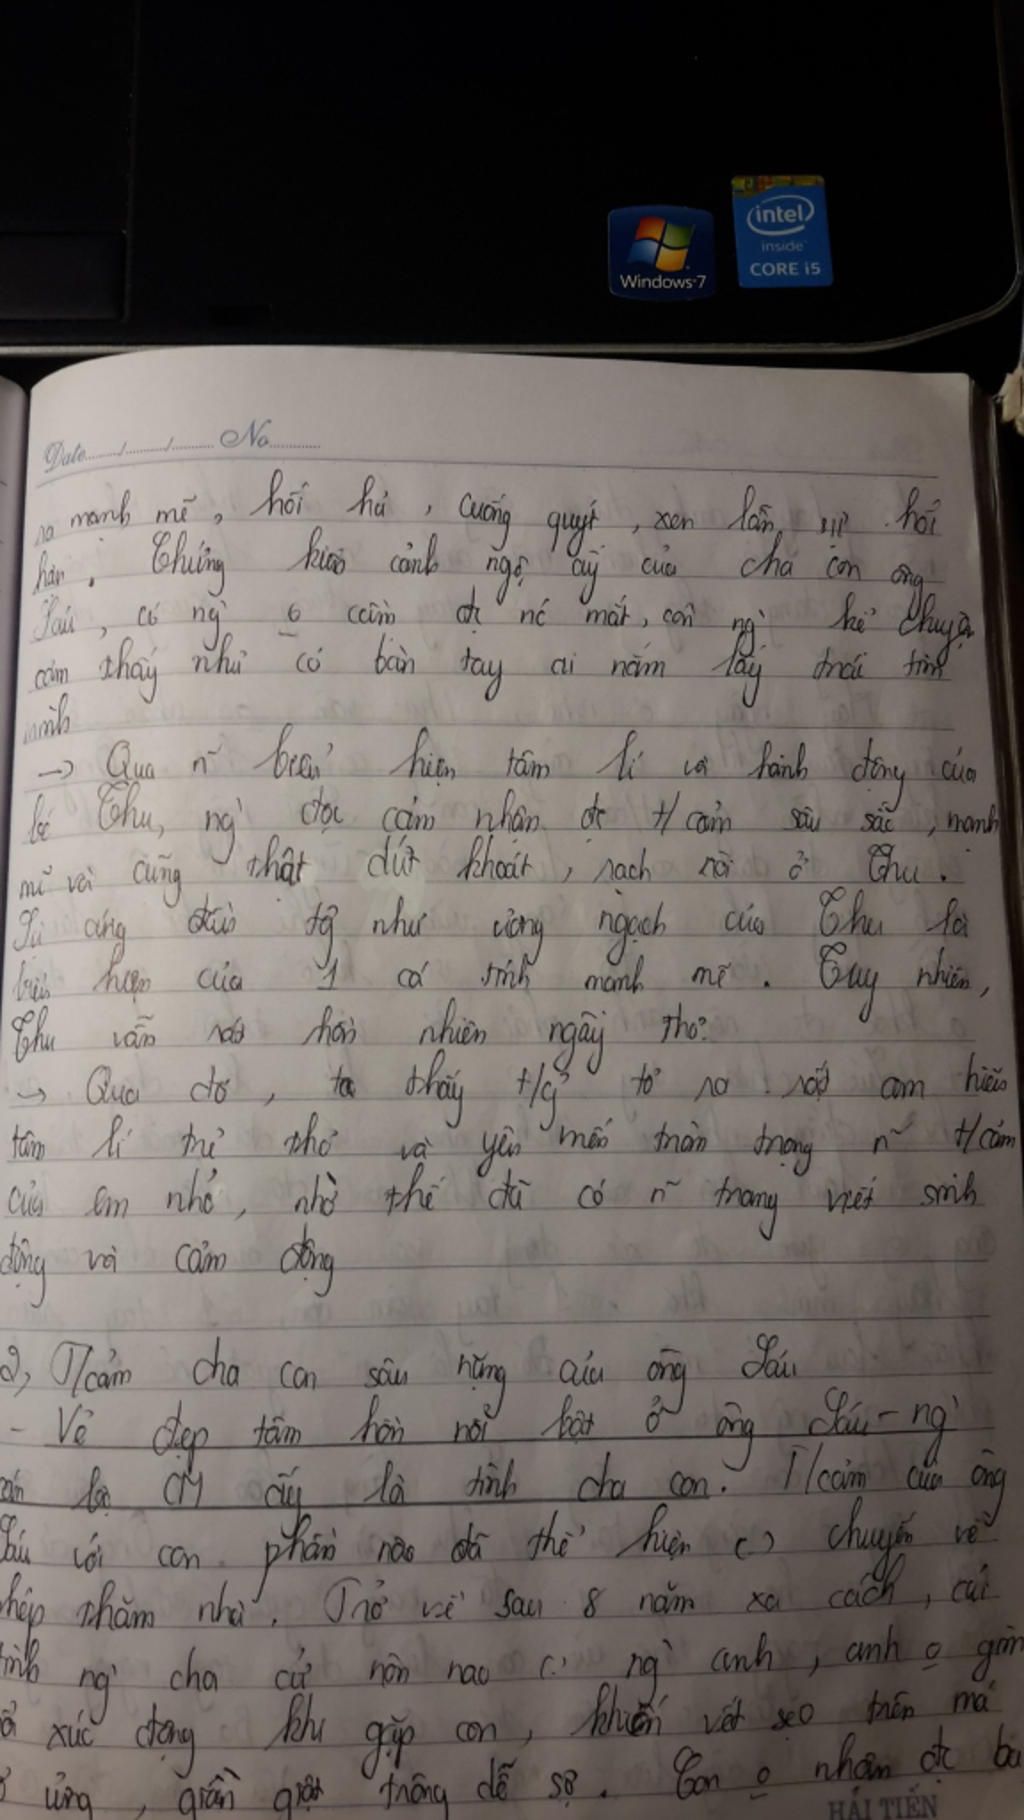 intel
inside
CORE i5
Windows 7
Date...../...../........ No..........
ra mạnh mẽ, hối hả, cuống quýt, xen lẫn sự hối
hận. Chứng kiến cảnh ngộ ấy của cha con ông
Sáu, có ng` o cầm đc nc mắt, còn ng` kể chuyện
cảm thấy như có bàn tay ai nắm lấy trái tim
mình
→ Qua n~ biểu hiện tâm lí và hành động của
bé Thu, ng` đọc cảm nhận đc t/cảm sâu sắc, mạnh
mẽ và cũng thật dứt khoát, rạch ròi ở Thu.
Sự cứng đầu tg như ương ngạch của Thu là
biểu hiện của 1 cá tính mạnh mẽ. Tuy nhiên,
Thu vẫn rất hồn nhiên ngây thơ.
→ Qua đó, ta thấy t/g tỏ ra rất am hiểu
tâm lí trẻ thơ và yêu mến trân trọng n~ t/cảm
của em nhỏ, nhờ thế đã có n~ trang viết sinh
động và cảm động
2, T/cảm cha con sâu nặng của ông Sáu
- Vẻ đẹp tâm hồn nổi bật ở ông Sáu - ng`
cán bộ CM ấy là tình cha con. T/cảm của ông
Sáu với con phần nào đã thể hiện (.) chuyến về
phép thăm nhà. Trở về sau 8 năm xa cách, cái
tình ng` cha cứ nôn nao (.) ng` anh, anh o gìm
xúc động khi gặp con, khiến vết sẹo trên má
ửng, giần giật trông dễ sợ. Con o nhận đc ba
HẢI TIẾN